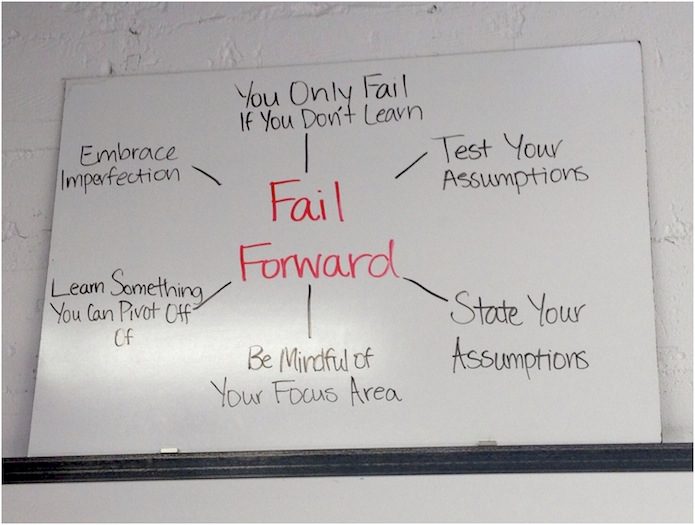 You Only Fail
If You Don't Learn
Embrace
Imperfection
Test Your
Assumptions
Fail
Forward
Learn Something
You Can Pivot Off
Of
State Your
Assumptions
Be Mindful of
Your Focus Area